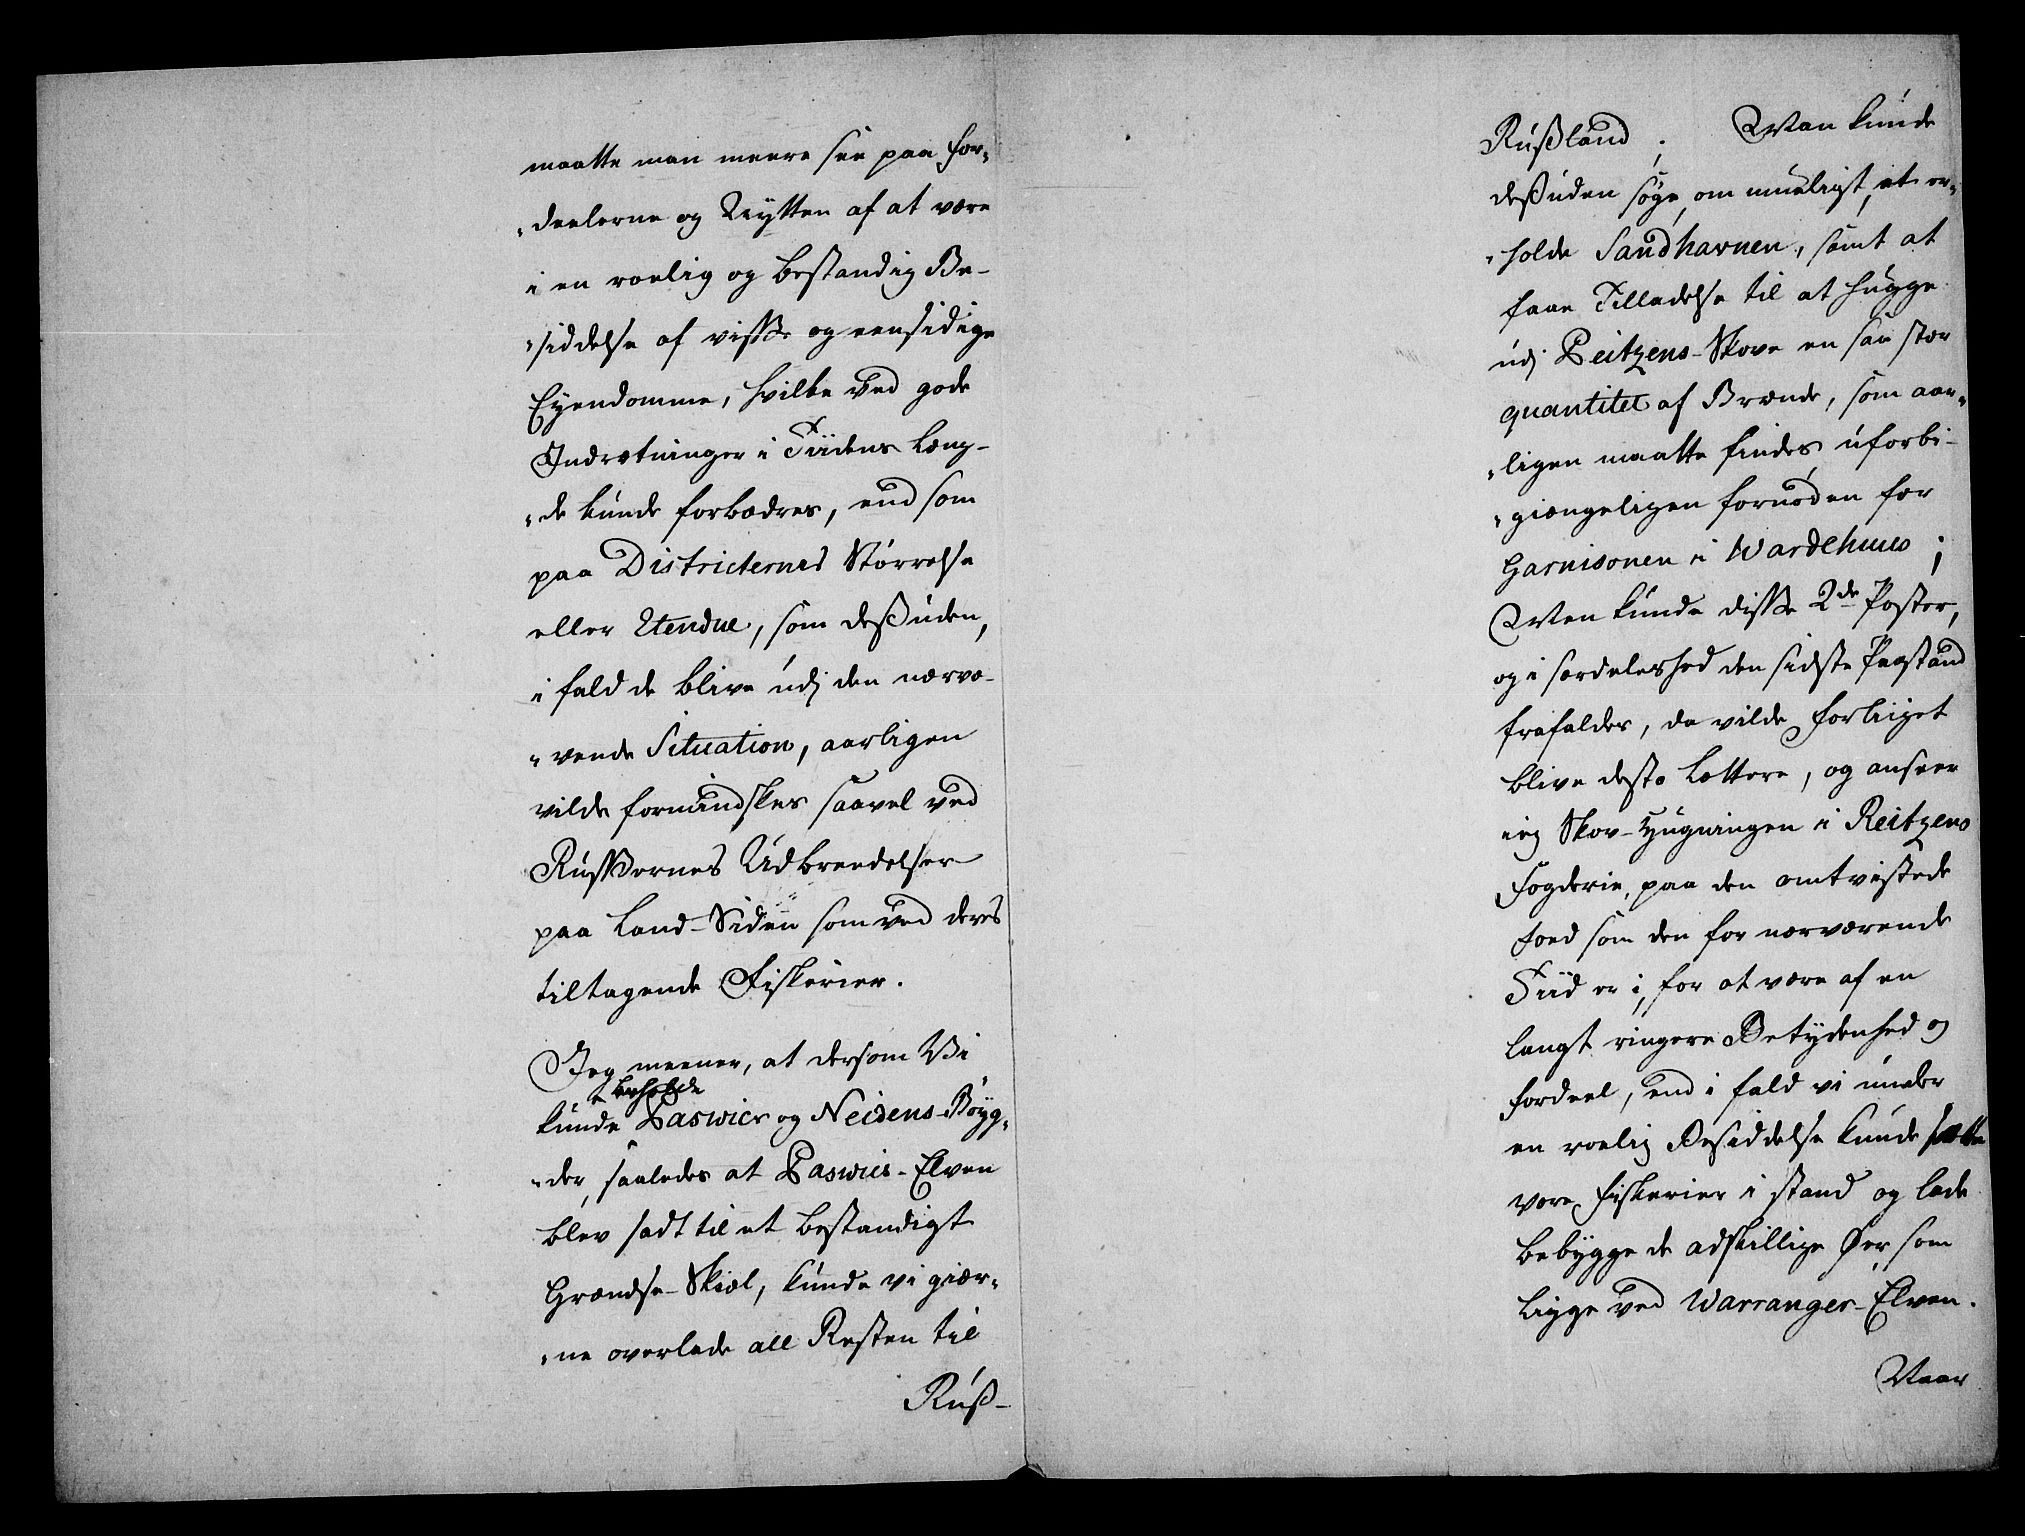 maatte man meere see paa For-
„deelerne og Nytten af at være
i en roelig og bestandig Be-
„siddelse af visse og eensidige
Eyendomme, hvilke ved gode
Indretninger i Tiidens Læng-
„de kunde forbedres, end som
paa Districternes Størrelse
eller Etendue, som desuden,
i fald de blive udj den nærvæ-
„rende Situation, aarligen
vilde formindskes saavel ved
Russernes Udbredelser
paa Land-Siden som ved deres
tiltagende Fiskerier.
Jeg meener, at dersom Vi
beholde
kunde Paswics og Neidens-Bøyg-
„der, saaledes at Paswics-Elven
blev sadt til et bestandigt
Grændse-Skiæl, kunde vi giær-
„ne overlade all Resten til
Ruß-
Rußland; Man kunde
desuden søge, om mueligt, at er-
„holde Sandhavnen, samt at
faae Tilladelse til at hugge
udj Peitzens-Skove en saa stor
quantitet af Brænde, som aar-
„ligen maatte findes uforbi-
„giængeligen fornøden for
Garnisonen i Wardehuus;
Men kunde disse 2de Poster,
og i særdeleshed den sidste Paastand
frafaldes, da vilde Forliiget
blive desto lættere, og anseer
ieg Skov-Hugningen i Peitzens
Fogderie, paa den omtvistede
Foed som den for nærværende
Tiid er i, for at være af en
langt ringere Betydenhed og
Fordeel, end i fald vi under
en roelig Besiddelse kunde sætte
vore Fiskerier i stand og lade
bebygge de adskillige Øer, som
ligge ved Warranger-Elven.
Naar